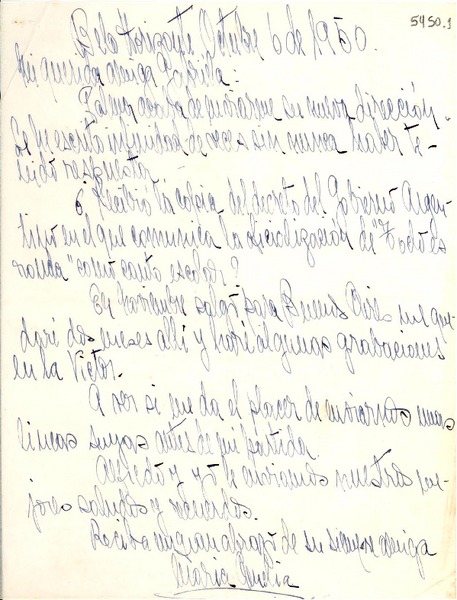 5450.1
Belo Horizonte Octubre 6 de 1950.
Mi querida amiga Gabriela.
Palma acaba de enviarme su nueva dirección.
Le he escrito infinidad de veces sin nunca haber te-
nido respuesta.
¿ Recibió la copia del decreto del Gobierno Argen-
tino en el que comunica la oficialización de "Todo es
ronda" como canto escolar?
En noviembre salgo para Buenos Aires me que-
daré dos meses allí y haré algunas grabaciones
en la Victor.
A ver si me da el placer de enviarnos unas
lineas suyas antes de mi partida.
Alfredo y yo le enviamos nuestros me-
jores saludos y recuerdos.
Reciba un gran abrazo de su siempre amiga
Maria Emelia